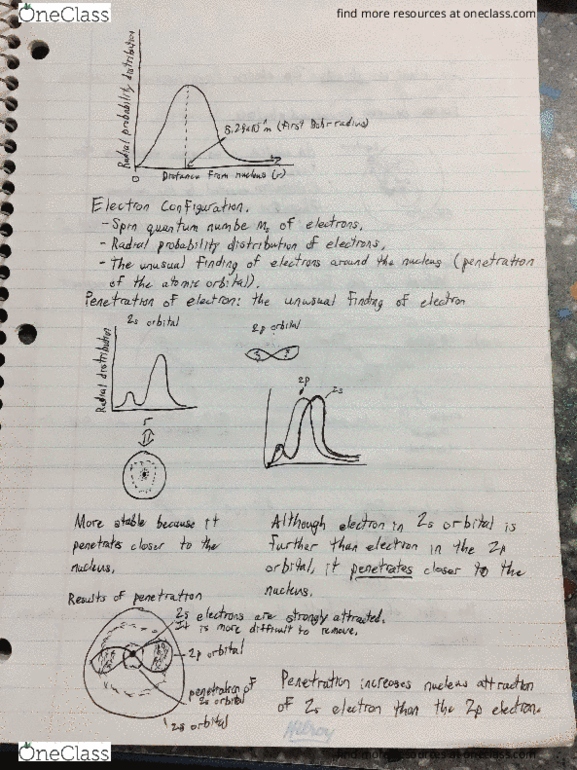 OneClass
find more resources at oneclass.com
Radial probability distribution
5.29x10 m (First Bohr radius)
0
Distance from nucleus (r)
Electron Configuration.
- Spin quantum numbe Ms of electrons.
- Radial probability distribution of electrons.
- The unusual finding of electrons around the nucleus (penetration
of the atomic orbital).
Penetration of electron: the unusual finding of electron
2s orbital
2p orbital
Radial distribution
r
2p
2s
More stable because it
penetrates closer to the
nucleus.
Although electron in 2s orbital is
further than electron in the 2p
orbital, it penetrates closer to the
nucleus.
Results of penetration
2s electrons are strongly attracted.
It is more difficult to remove.
2p orbital
penetration of
2s orbital
2s orbital
Penetration increases nucleus attraction
of 2s electron than the 2p electron.
Hilroy
OneClass
find more resources at oneclass.com